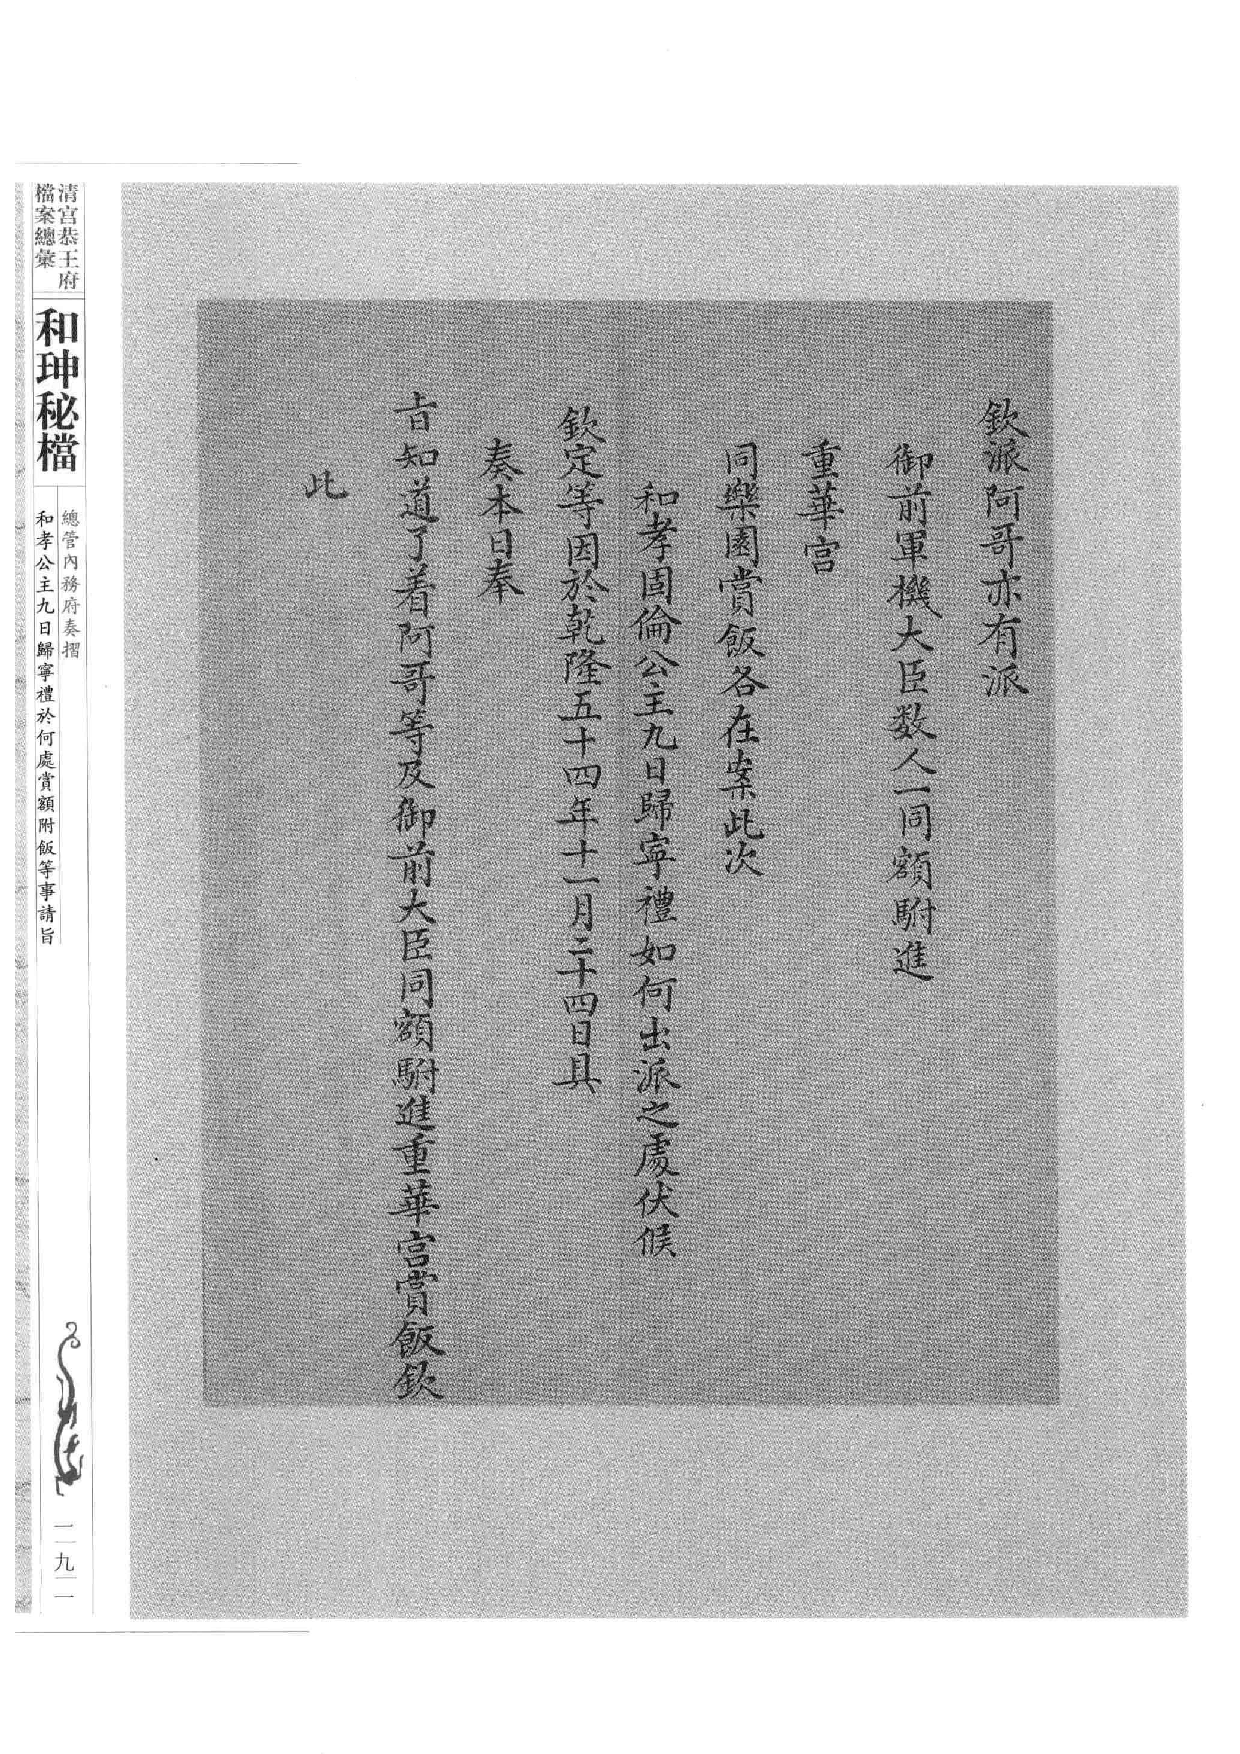 欽派阿哥亦有派
御前軍機大臣数人一同額駙進
重華宮
同樂園賞飯各在案此次
和孝固倫公主九日歸寧禮如何出派之處伏候
欽定等因於乾隆五十四年十一月二十四日具
奏本日奉
旨知道了着阿哥等及御前大臣同額駙進重華宮賞飯欽
此
清宮恭王府
檔案總彙
和珅秘檔
總管內務府奏摺
和孝公主九日歸寧禮於何處賞額附飯等事請旨
二九一